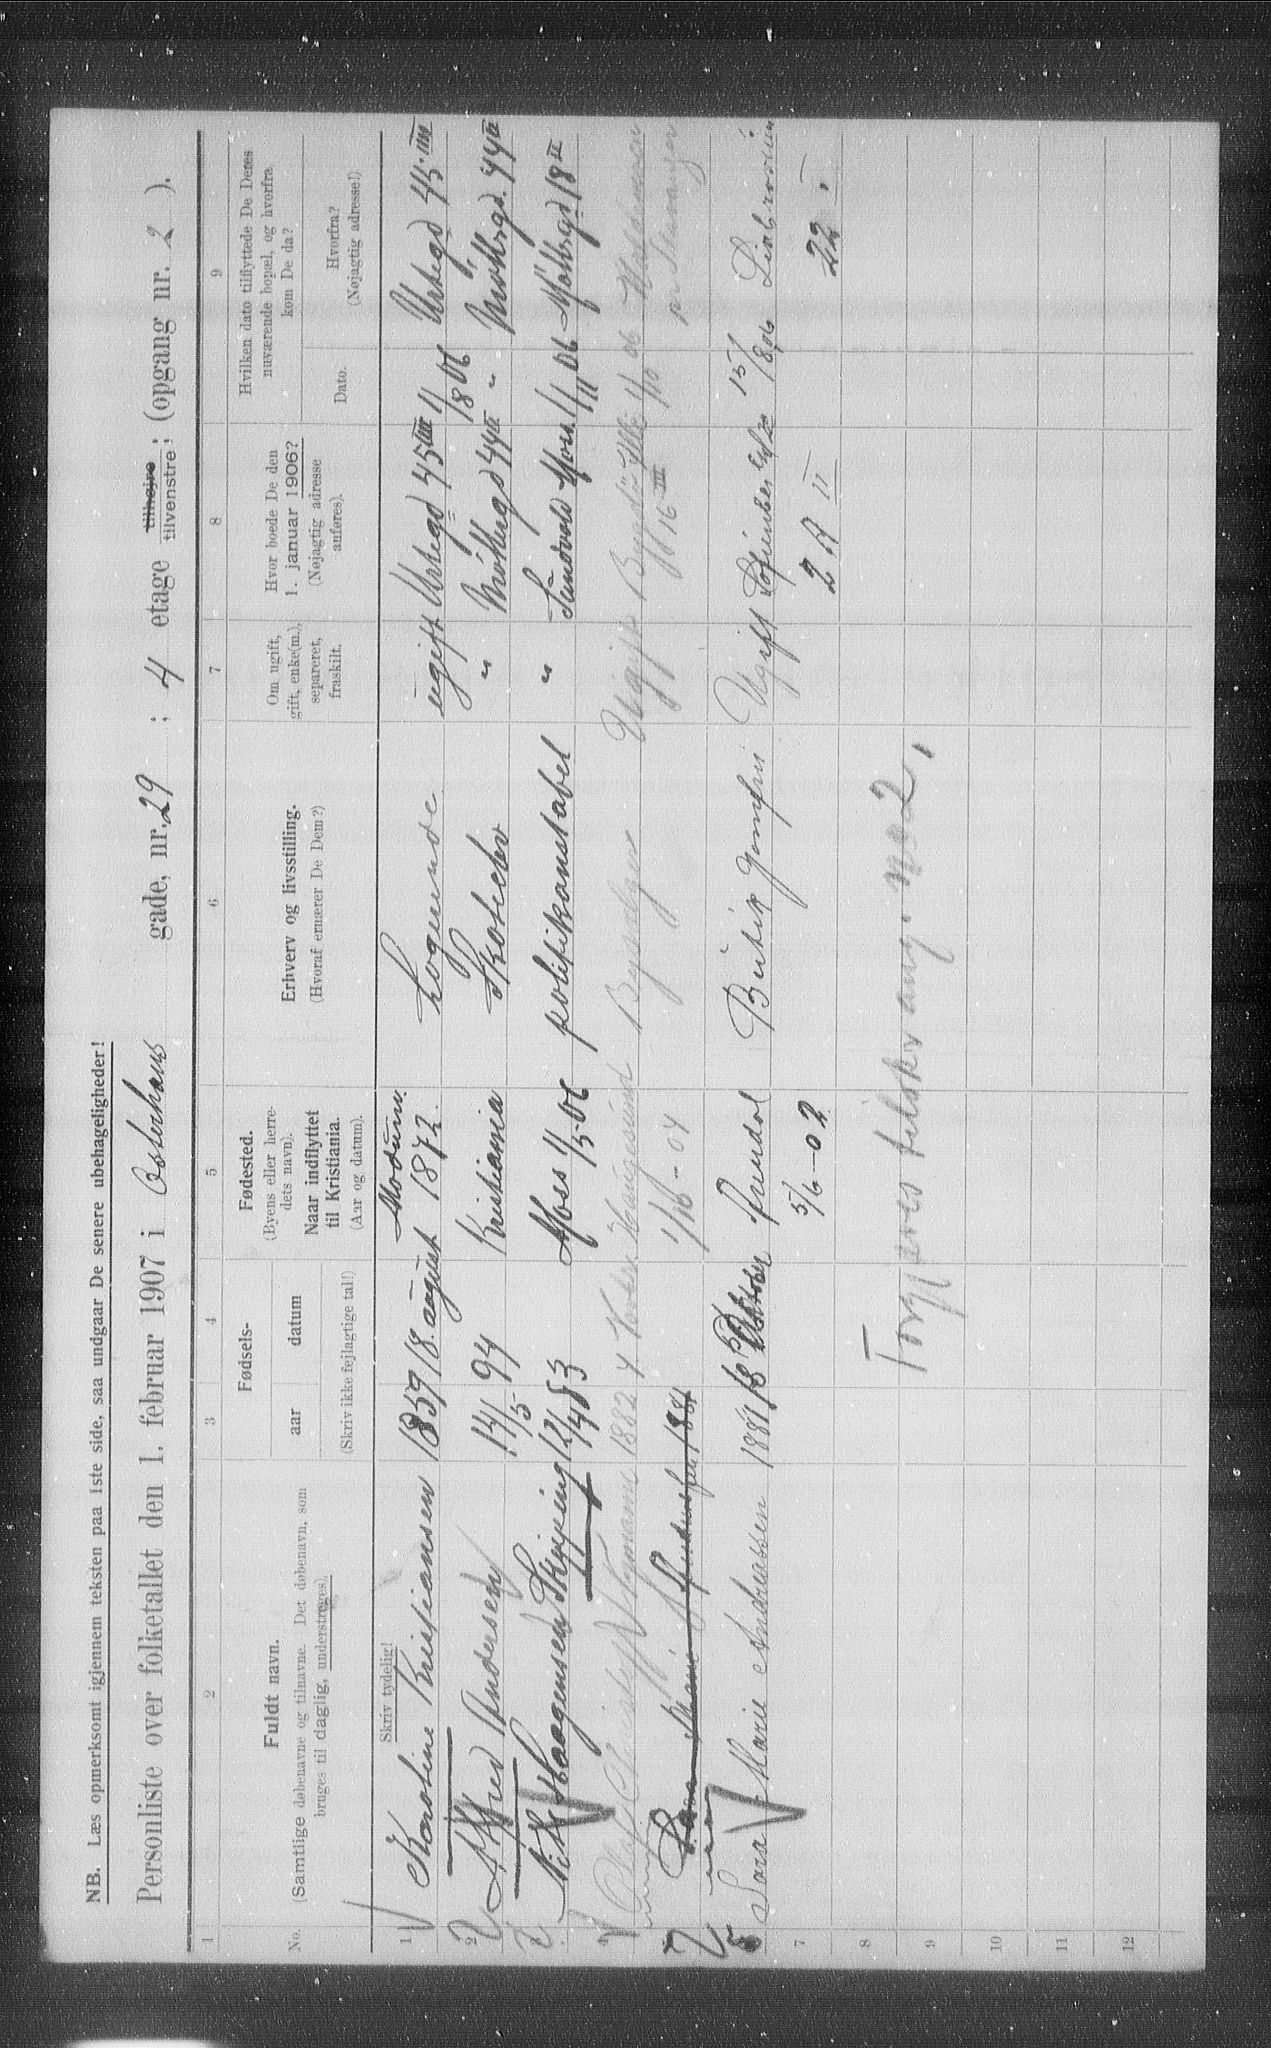 NB. Læs opmerksomt igjennem teksten paa 1ste side, saa undgaar De senere ubehageligheder!
Personliste over folketallet den 1. februar 1907 i Osterhaus gade, nr. 29 ; 4 etage tilhøjre tilvenstre; (opgang nr. 2 ).
1 2 3 4 5 6 7 8 9
No.
Fuldt navn.
(Samtlige døbenavne og tilnavne. Det døbenavn, som
bruges til daglig, understreges).
Skriv tydelig!
Fødsels-
aar datum
(Skriv ikke fejlagtige tal!)
Fødested.
(Byens eller herre-
dets navn).
Naar indflyttet
til Kristiania.
(Aar og datum).
Erhverv og livsstilling.
(Hvoraf ernærer De Dem?)
Om ugift,
gift, enke(m.),
separeret,
fraskilt.
Hvor boede De den
1. januar 1906?
(Nøjagtig adresse
anføres).
Hvilken dato tilflyttede De Deres
nuværende bopæl, og hvorfra
kom De da?
Dato.
Hvorfra?
(Nøjagtig adresse!)
1 Karoline Kristiansen 1859 18. august Modum. 1872. Logerende ugift Urtegd 45 III 1/8 06 Urtegd 45 III
2 Alfred Andersen 14/5 94 Kristiania " Møllergd 44 II " Møllergd. 44 II
3 Nils Haagensen Skjeping 12/4 83 Moss 1/5-06 politikonstabel " Sandvold Moss. 1/11 06 Møllergd 18 II
4 Olaf 1882 4 Haugesund Ugift Bygdø
1/10-04 16 III
5 Sara Marie 1881
6 Sara Marie Andreassen 1881 18 Oktober Butik Ugift 15/8 06
5/6-02 2 A II 22 I
7
8
9
10
11
12